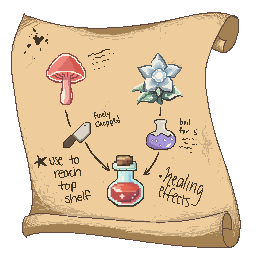 finely
chopped
boil
for 5
★use to
reach
top
shelf
•healing
effects